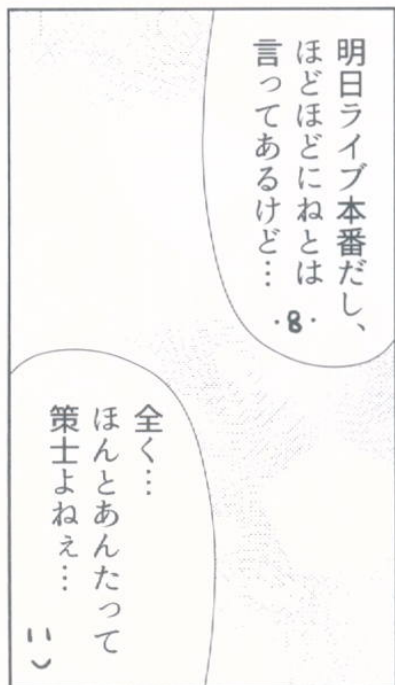 明日ライブ本番だし、
ほどほどにねとは
言ってあるけど…
全く…
ほんとあんたって
策士よねぇ…